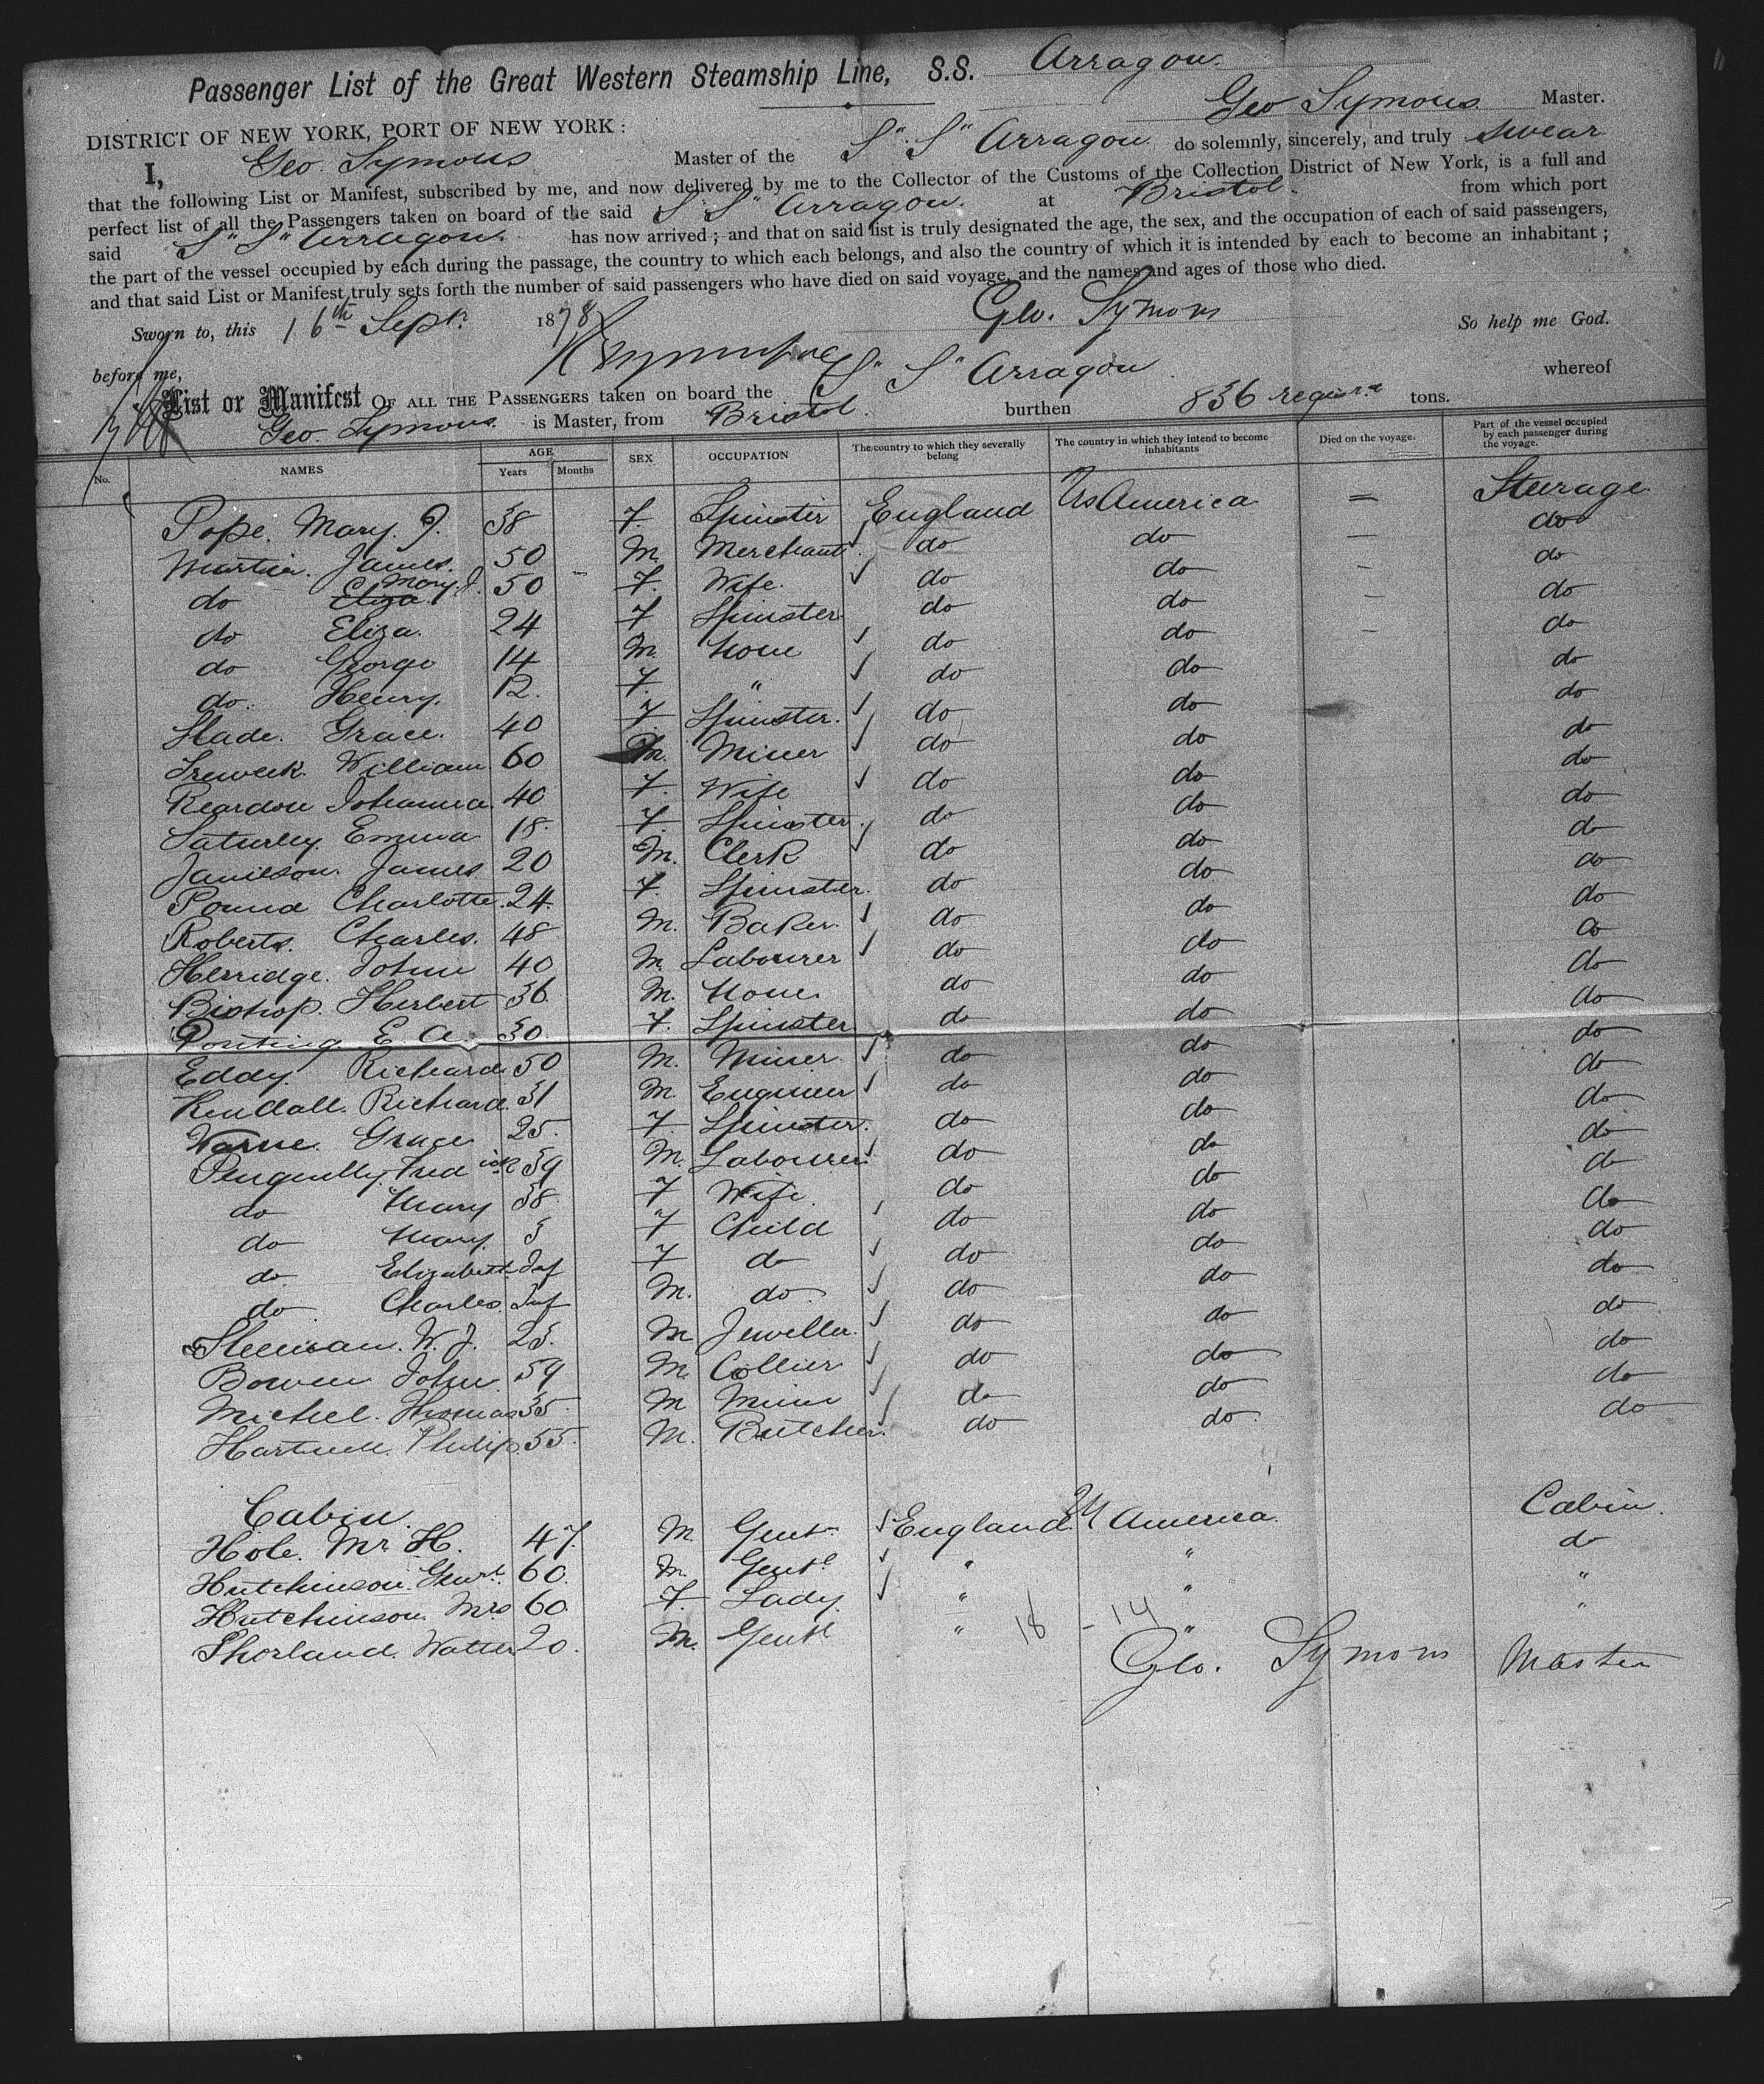 Passenger List of the Great Western Steamship Line, S.S. Arragon.
Geo Symons Master.
DISTRICT OF NEW YORK, PORT OF NEW YORK :
I, Geo. Symons Master of the S" S" Arragon do solemnly, sincerely, and truly swear
that the following List or Manifest, subscribed by me, and now delivered by me to the Collector of the Customs of the Collection District of New York, is a full and
perfect list of all the Passengers taken on board of the said S" S" Arragon. at Bristol. from which port
said S" S" Arragon. has now arrived ; and that on said list is truly designated the age, the sex, and the occupation of each of said passengers,
the part of the vessel occupied by each during the passage, the country to which each belongs, and also the country of which it is intended by each to become an inhabitant ;
and that said List or Manifest truly sets forth the number of said passengers who have died on said voyage, and the names and ages of those who died.
Sworn to, this 16th Septr. 1878 Geo. Symons So help me God.
before me,
List or Manifest OF ALL THE PASSENGERS taken on board the S" S" Arragon whereof
Geo. Symons. is Master, from Bristol. burthen 836 tons.
No. NAMES AGE Years Months SEX OCCUPATION The country to which they severally belong The country in which they intend to become inhabitants Died on the voyage. Part of the vessel occupied by each passenger during the voyage.
Pope. Mary. J. 38 F. Spinster England Us America — Steerage.
Martin. James. 50 M. Merchant. do do — do
do Eliza Mary. J. 50 F. Wife. do do — do
do Eliza. 24 F Spinster do do — do
do George 14 M. None do do — do
do. Henry. 12. F. " do do do
Slade. Grace. 40 F Spinster. do do do
Treweek. William. 60 M. Miner do do do
Reardon Johanna. 40 F. Wife do do do
Saturley Emma 18. F. Spinster. do do do
Jamieson. James. 20 M. Clerk do do do
Pound Charlotte. 24. F. Spinster. do do do
Roberts. Charles. 48 M. Baker. do do do
Herridge. John 40 M. Labourer do do do
Bishop. Herbert 36. M. None. do do do
Ponting. E. A. 30. F. Spinster do do do
Eddy. Richard 50 M. Miner. do do do
Kendall. Richard. 31 M. Engineer do do do
Warne. Grace 25. F. Spinster. do do do
Pengelly. Fredick 39 M. Labourer do do do
do Mary 38. F Wife. do do do
do Mary. 3 F Child do do do
do Elizabeth Inf F do do do do
do Charles. Inf M. do do do do
W. J. 23. M Jeweller. do do do
Bowen John. 59 M. Collier do do do
Michel. Thomas 35. M Miner do do do
Hartnell. Philip. 55. M. Butcher. do do. do
Cabin. Cabin.
Hole. Mr. H. 47. M. Gent. England US America. do
Hutchinson. 60. M. Gentl " " "
Hutchinson. Mrs 60. F. Lady. " " "
Shorland. Walter 20. M. Gentl " "
18 - 14
Geo. Symons Master